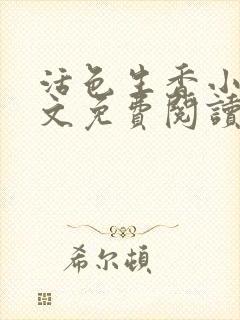 活色生香小
文免費閱讀
希尔頓